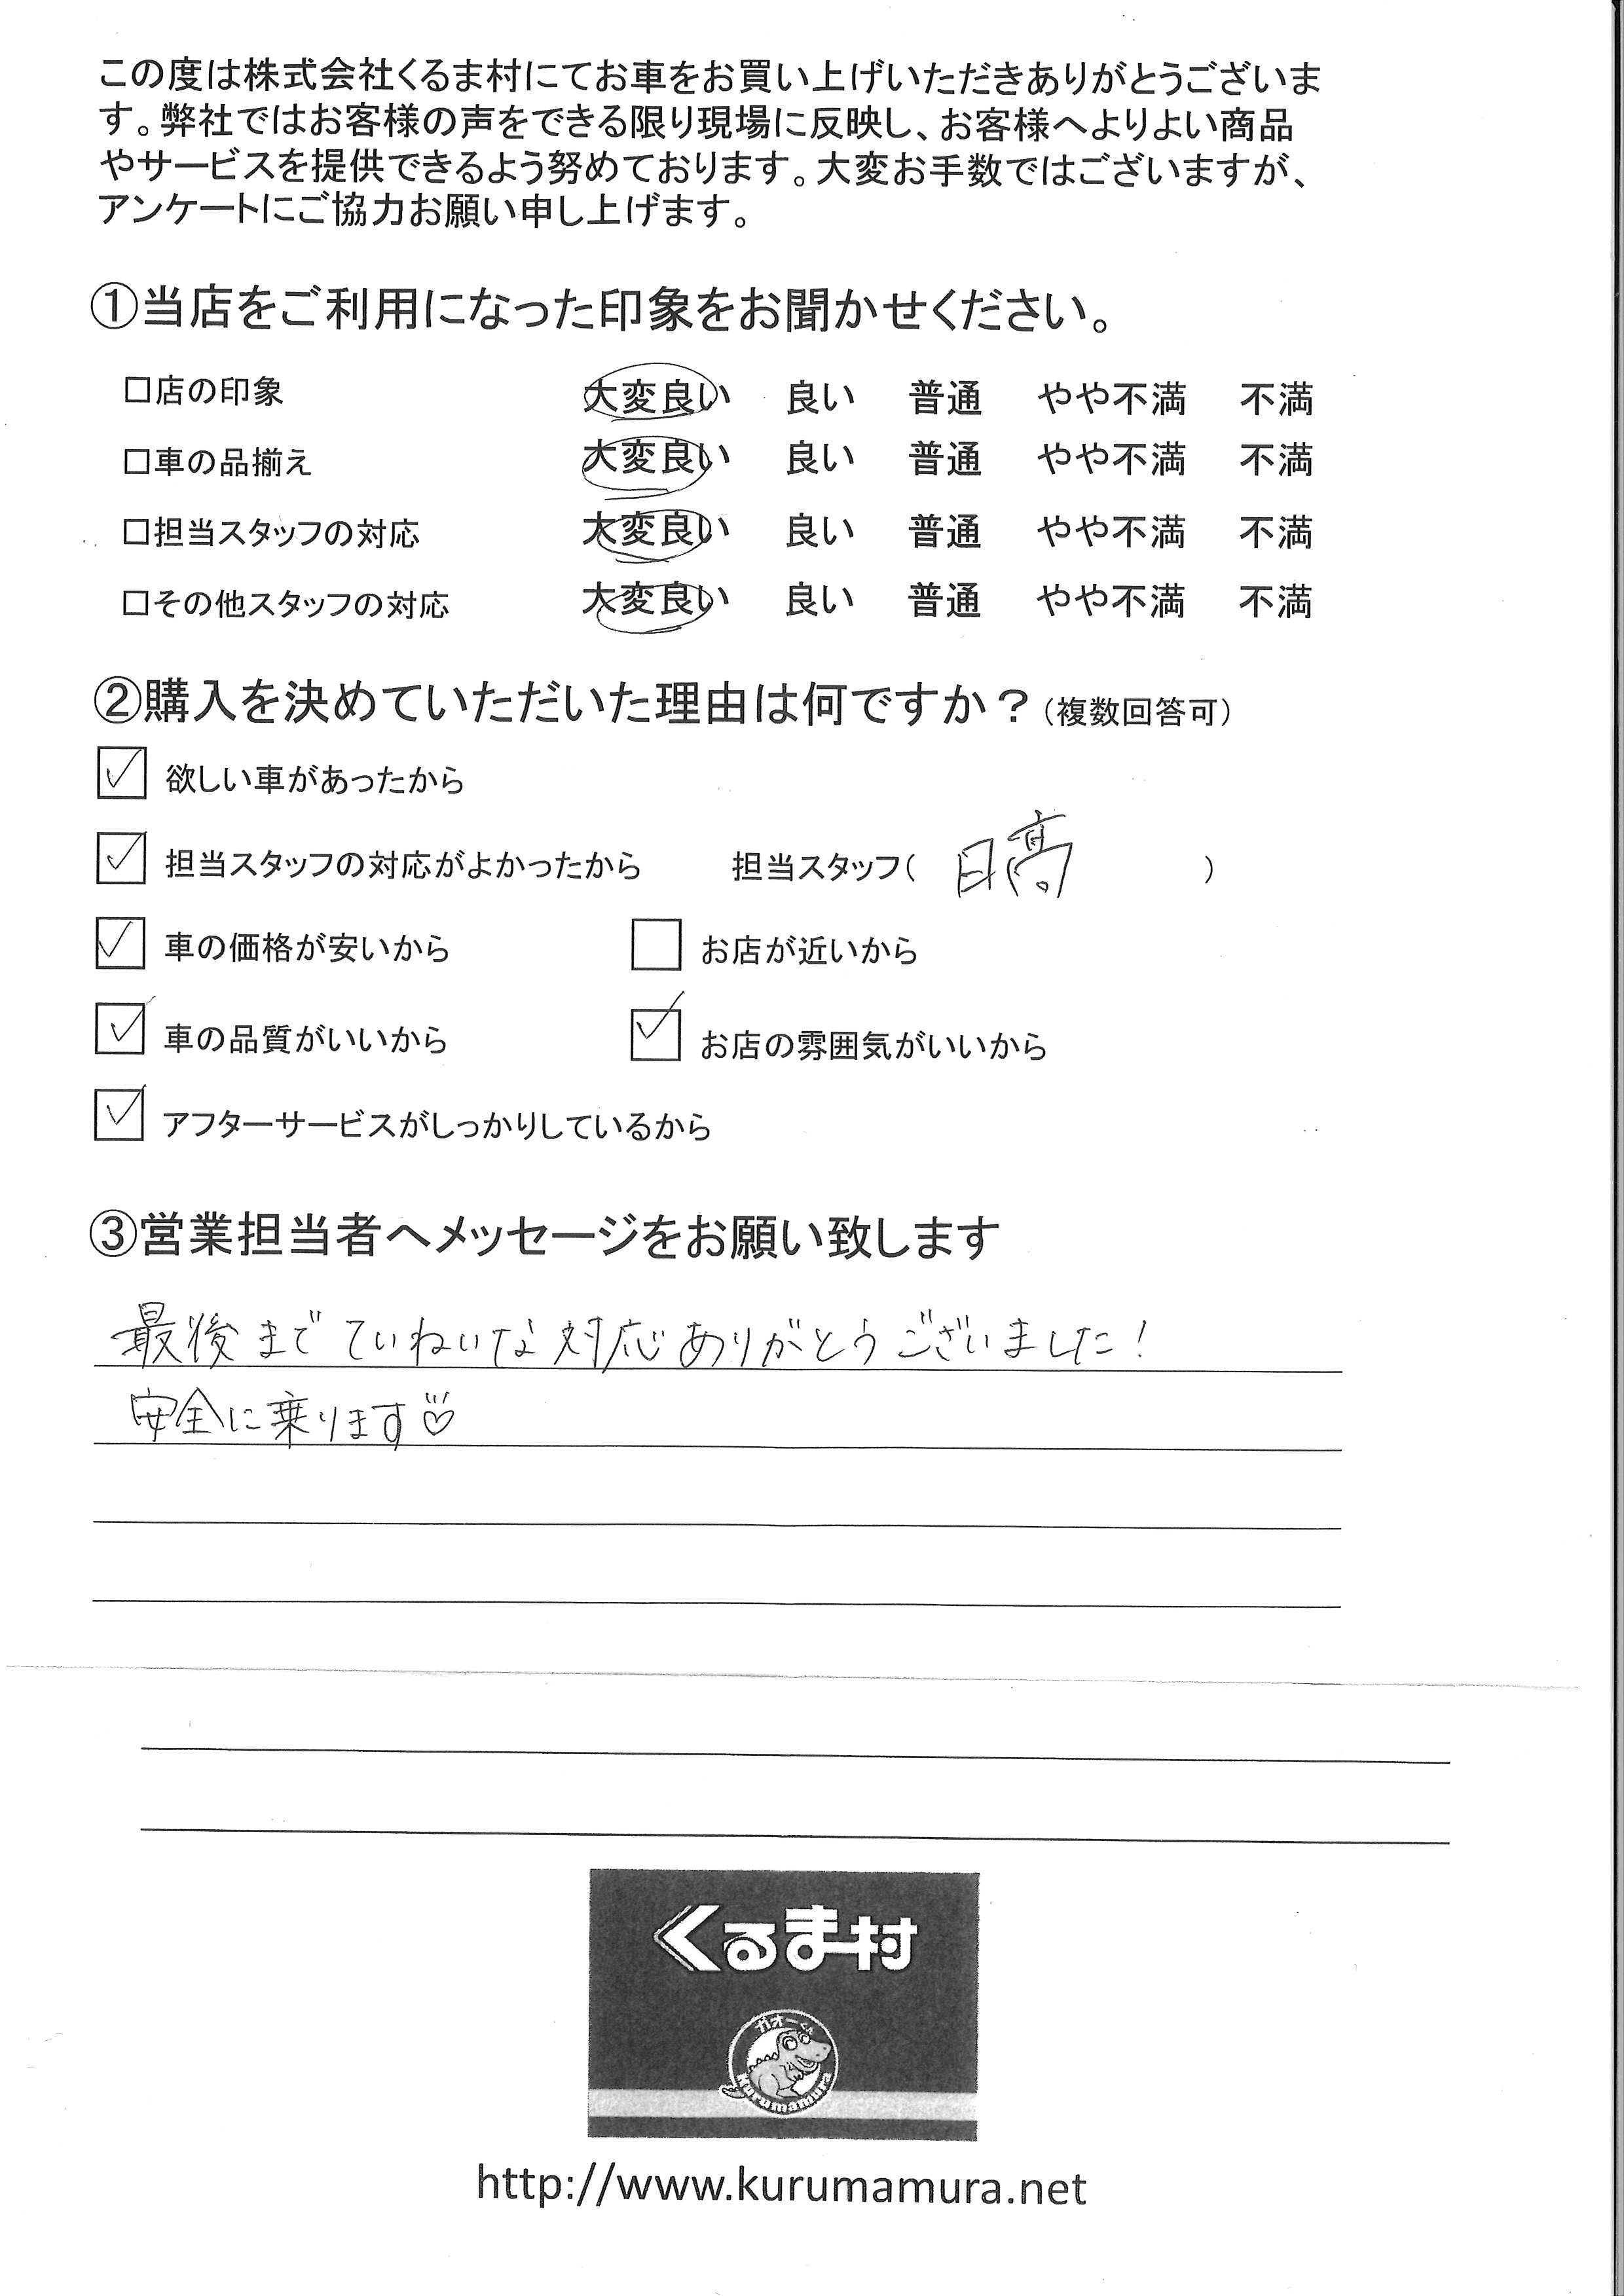 この度は株式会社くるま村にてお車をお買い上げいただきありがとうございま
す。弊社ではお客様の声をできる限り現場に反映し、お客様へよりよい商品
やサービスを提供できるよう努めております。大変お手数ではございますが、
アンケートにご協力お願い申し上げます。
①当店をご利用になった印象をお聞かせください。
□店の印象 大変良い 良い 普通 やや不満 不満
□車の品揃え 大変良い 良い 普通 やや不満 不満
□担当スタッフの対応 大変良い 良い 普通 やや不満 不満
□その他スタッフの対応 大変良い 良い 普通 やや不満 不満
②購入を決めていただいた理由は何ですか？（複数回答可）
☑ 欲しい車があったから
☑ 担当スタッフの対応がよかったから 担当スタッフ（ 日高 ）
☑ 車の価格が安いから □ お店が近いから
☑ 車の品質がいいから ☑ お店の雰囲気がいいから
☑ アフターサービスがしっかりしているから
③営業担当者へメッセージをお願い致します
最後までていねいな対応ありがとうございました！
安全に乗ります♡
くるま村
ガオーくん
kurumamura
http://www.kurumamura.net